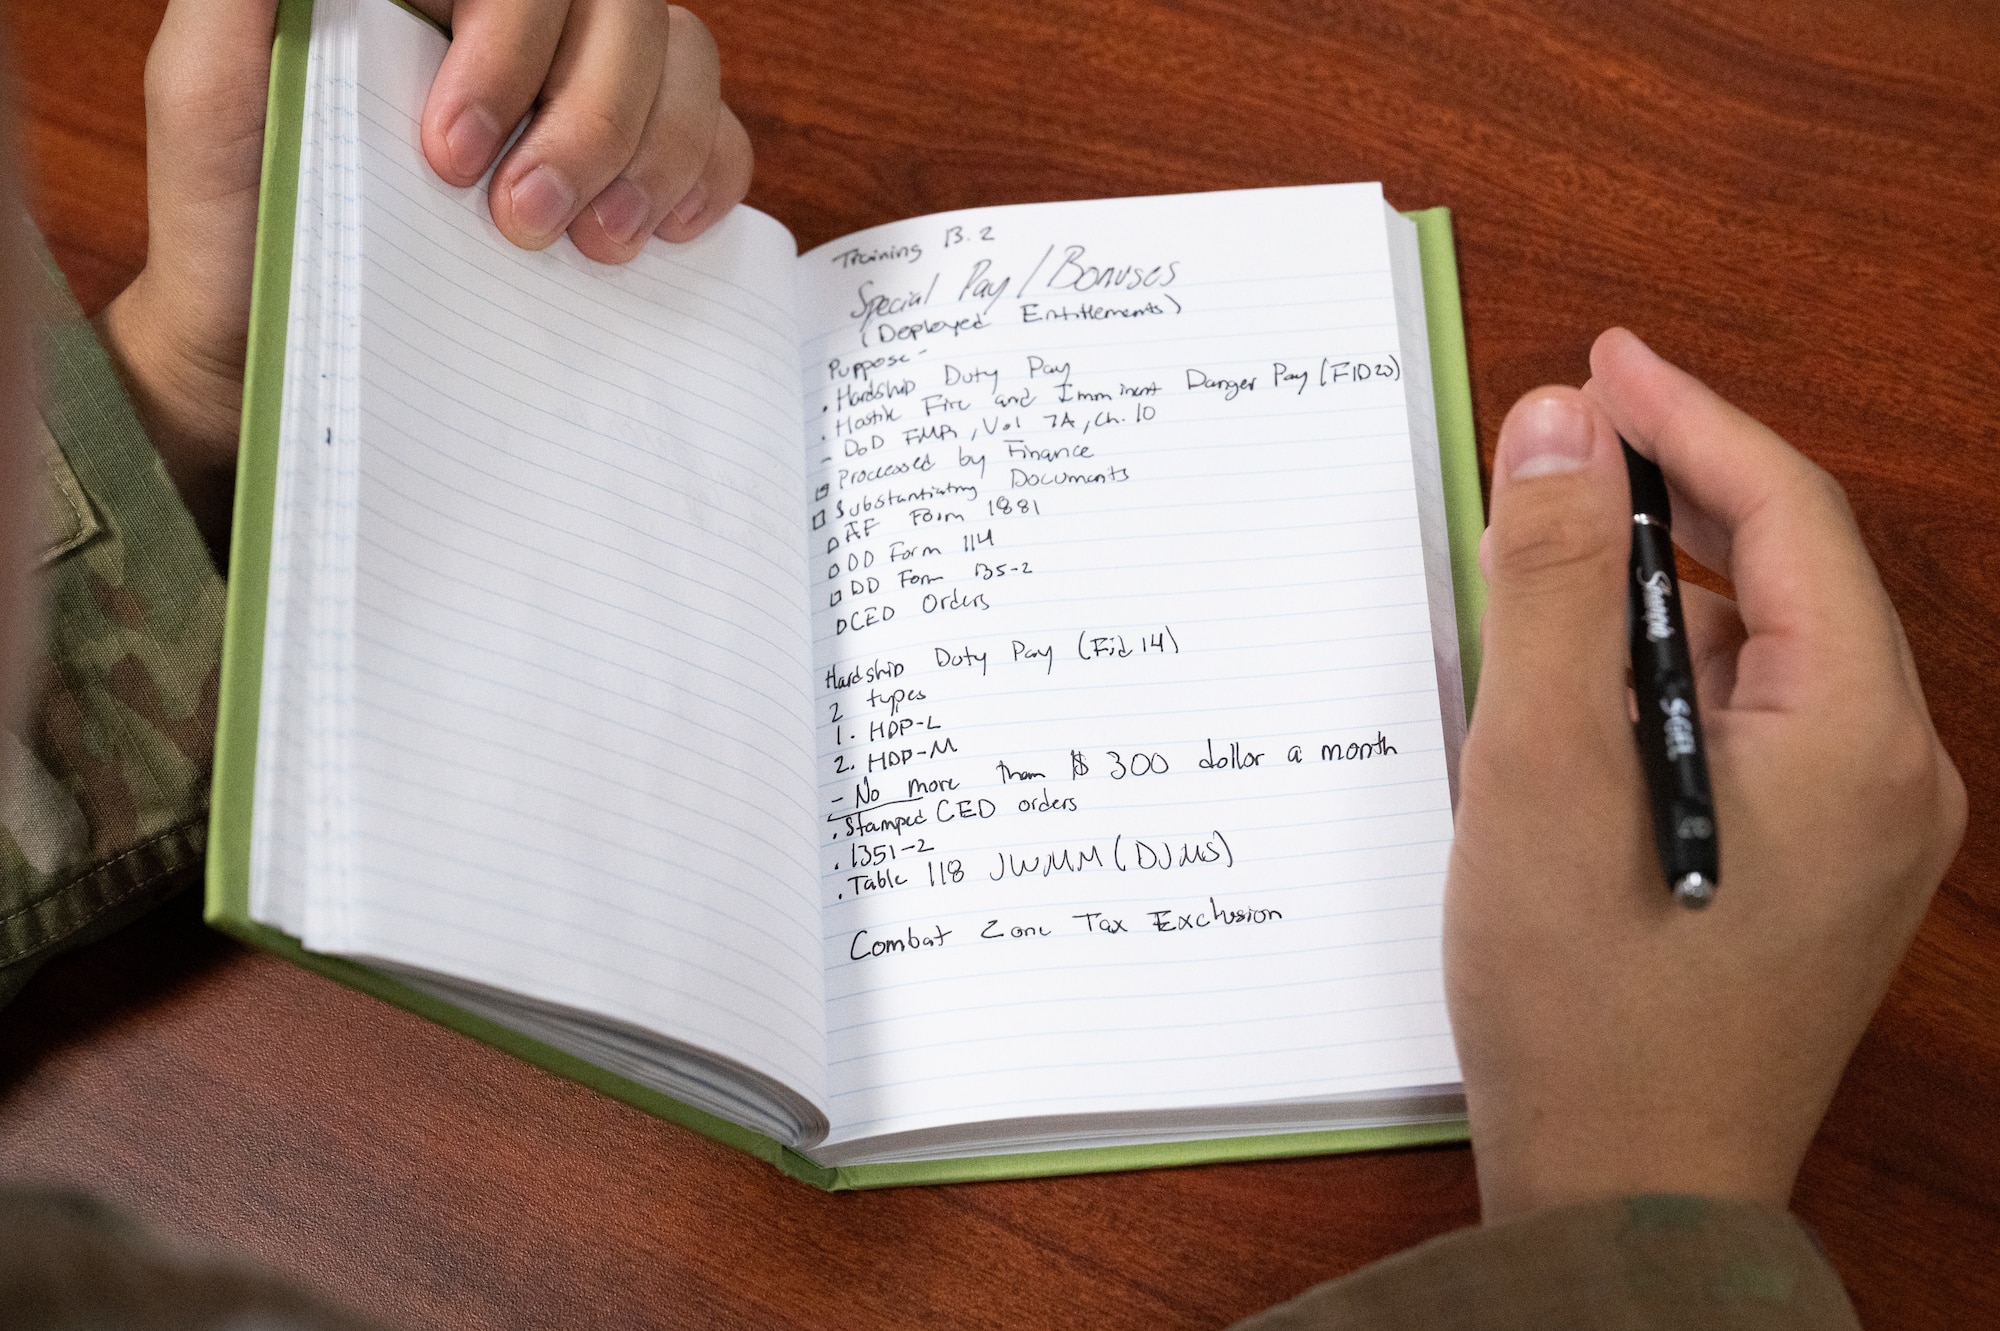 Training B.2
Special Pay / Bonuses
(Deployed Entitlements)
Purpose -
. Hardship Duty Pay
. Hostile Fire and Imminent Danger Pay (FID23)
- DoD FMR, Vol 7A, Ch. 10
Processed by Finance
Substantiating Documents
AF Form 1881
DD Form 114
DD Form 135-2
CED Orders
Hardship Duty Pay (Fid 14)
2 types
1. HDP-L
2. HDP-M
- No more than $ 300 dollar a month
. Stamped CED orders
. 1351-2
. Table 118 JWMM (DJMS)
Combat Zone Tax Exclusion
Sharpie S-GEL